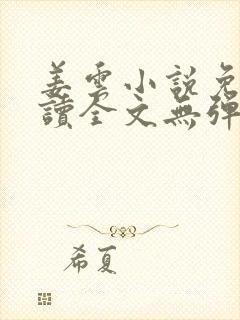 姜雲小說免
讀全文無彈
希夏